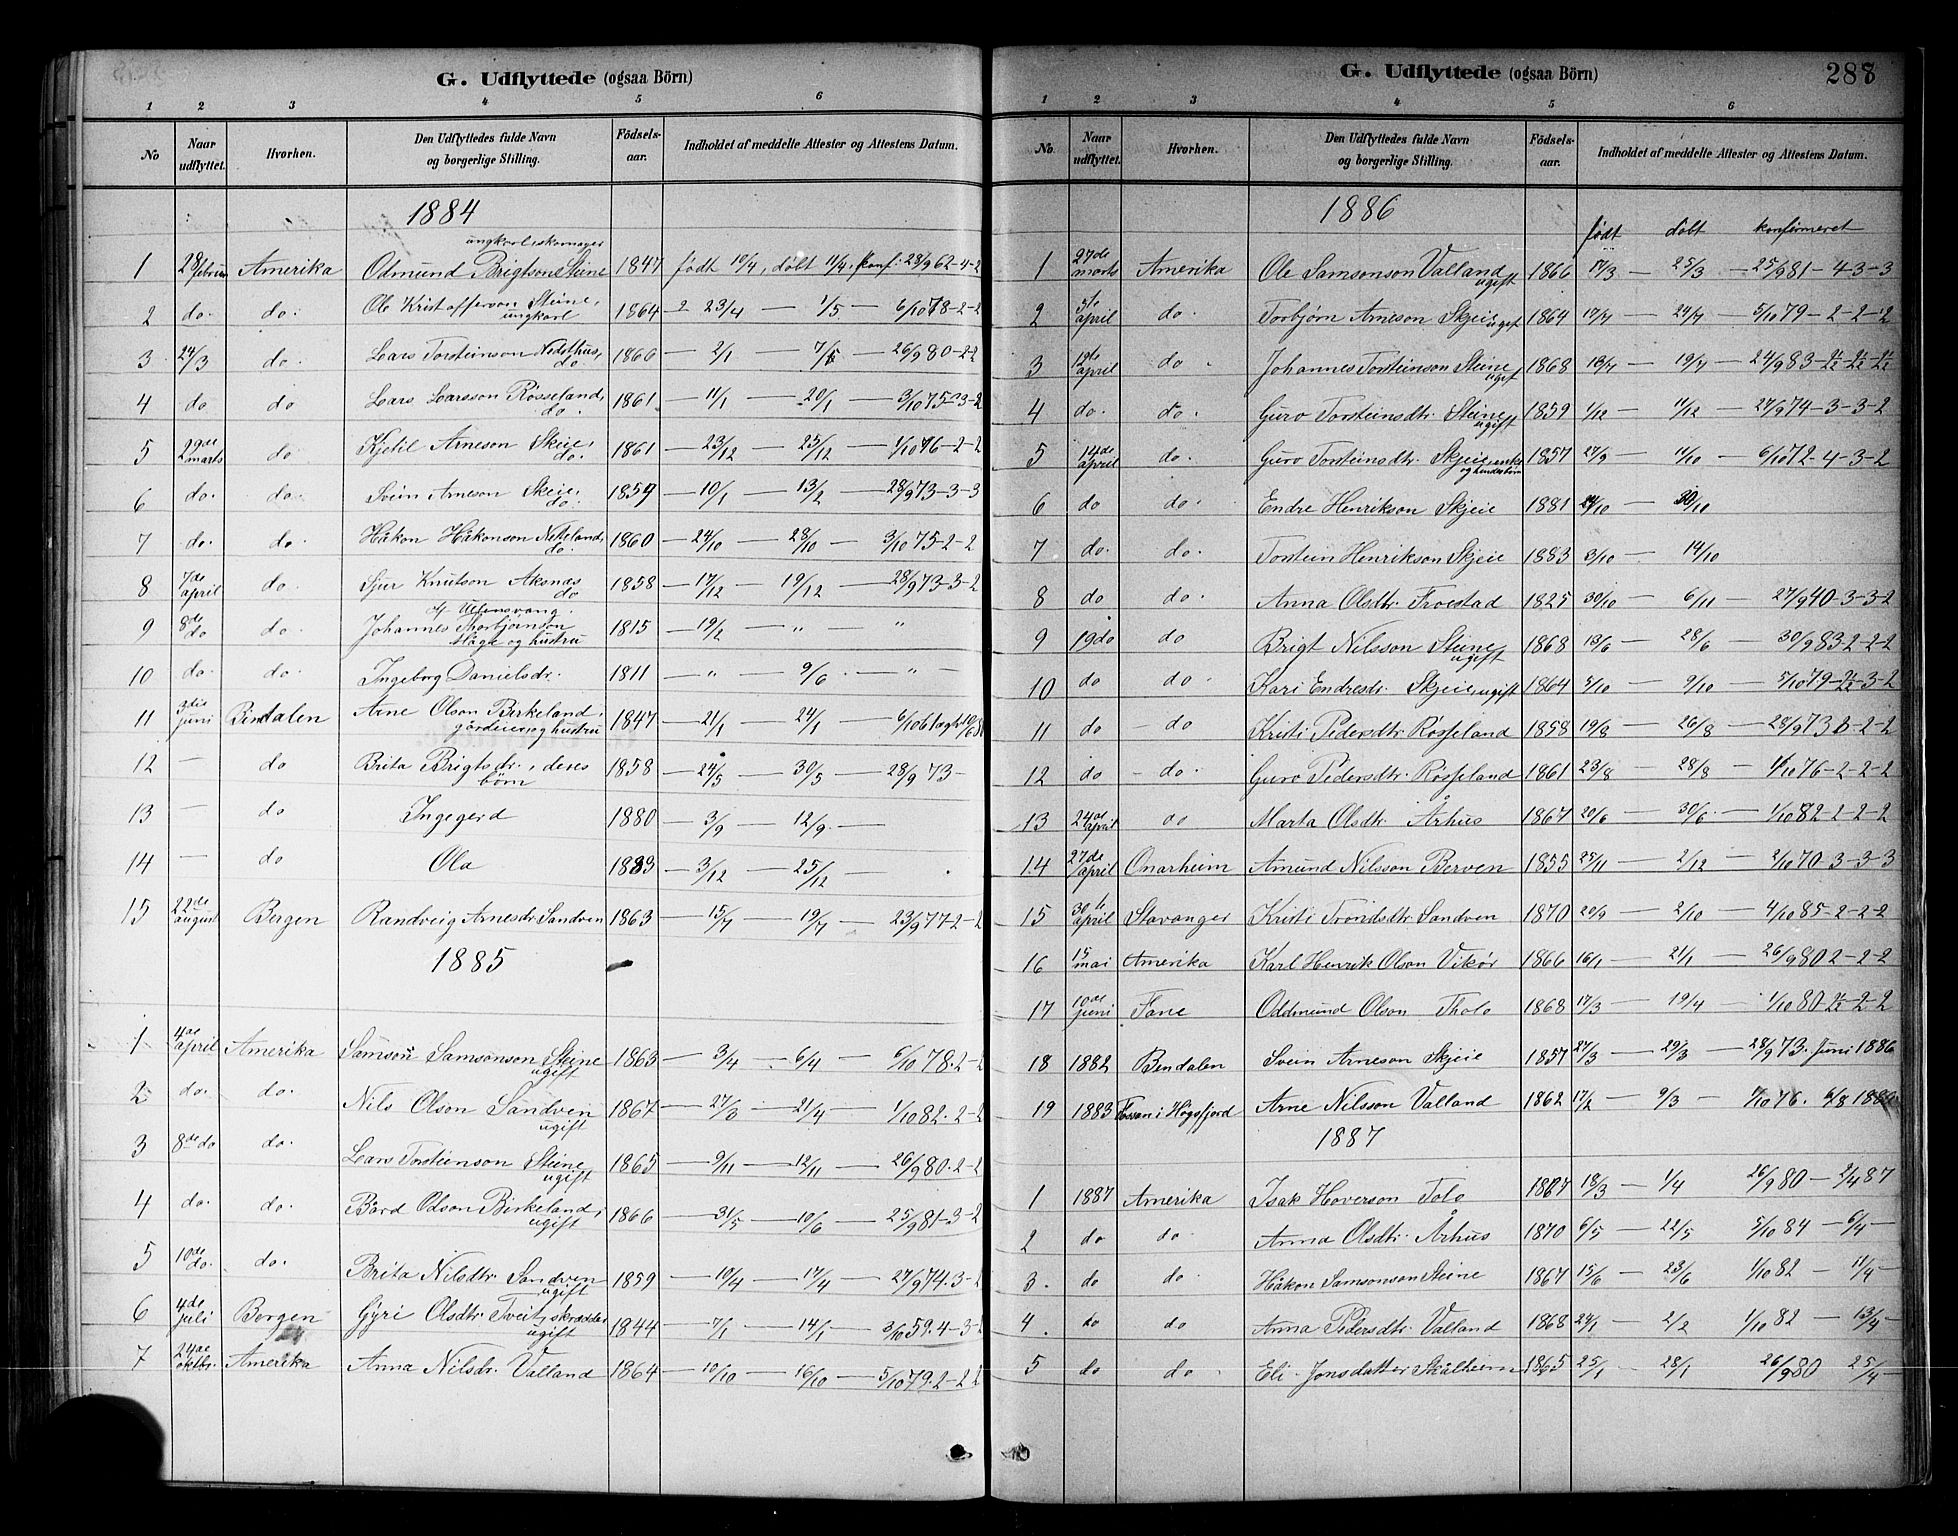 G. Udflyttede (ogsaa Börn)
1 2 3 4 5 6
No Naar udflyttet. Hvorhen. Den Udflyttedes fulde Navn og borgerlige Stilling. Födsels-aar. Indholdet af meddelte Attester og Attestens Datum.
1884
ungkarl skomager
1 28 februar Amerika Odmund Brigtson Steine 1847 født 10/4, døbt 11/4, konf: 28/9 62-4-2
2 do. do. Ole Kristofferson Steine, ungkarl 1864 23/4 — 1/5 — 6/10 78-2-2
3 24/3 do Lars Torsteinson Nedsthus, do. 1866 — 2/1 — — 26/9 80-2-2
4 do do Lars Larsson Rosseland, do. 1861 — 11/1 — 20/1 — 3/10 75-3-2
5 29de marts do Kjetil Arneson Skeie, do. 1861 — 23/12 — 25/12 — 1/10 76-2-2
6 do. do. Svein Arneson Skeie, do. 1857 — 10/1 — 13/2 — 28/9 73-3-3
7 do. do. Håkon Håkonson Neteland, do. 1860 — 24/10 — 28/10 — 3/10 75-2-2
8 7de april do. Sjur Knutson Aksnes do 1858 — 17/12 — 19/12 — 28/9 73-3-2
9 8de do do. Johannes Thorbjørnson af Ullensvang. og hustru 1815 — 19/2 — " — "
10 do. do. Ingeborg Danielsdr. 1811 — " — 9/6 — " —
11 3die juni Bindalen Arne Olson Birkeland, gårdeier og hustru 1847 — 21/1 — 24/1 — 6/10 61
12 — do Brita Brigtsdr., deres børn 1858 — 24/5 — 30/5 — 28/9 73 —
13 — do Ingegerd 1880 — 3/9 — 12/9 —
14 — do Ola 1883 — 3/12 — 25/12 —
15 22de august Bergen Randveig Arnesdr. Sandven 1863 — 15/7 — 19/7 — 23/9 77-2-2
1885
1 4de april Amerika Samson Samsonson Steine ugift 1863 — 3/4 — 6/4 — 6/10 78-2-2
2 do. do. Nils Olson Sandven ugift 1867 — 27/3 — 21/4 — 1/10 82-2-2
3 8de do do. Lars Torsteinson Steine ugift 1865 — 9/11 — 12/11 — 26/9 80-2-2
4 do. do. Bård Olson Birkeland, ugift 1866 — 31/5 — 10/6 — 25/9 81-3-2
5 10de do. do. Brita Nilsdtr. Sandven ugift 1859 — 10/4 — 17/4 — 27/9 74-3-2
6 4de juli Bergen Gyri Olsdtr. Tveit, skrædder ugift 1844 — 7/1 — 14/1 — 3/10 59-4-3-2
7 24de oktbr. Amerika Anna Nilsdr. Valland 1864 — 10/10 — 16/10 — 5/10 79-2-2
G. Udflyttede (ogsaa Börn) 288
1 2 3 4 5 6
No. Naar udflyttet. Hvorhen. Den Udflyttedes fulde Navn og borgerlige Stilling. Födsels-aar. Indholdet af meddelte Attester og Attestens Datum.
1886
født døbt konfirmeret
1 27de marts Amerika Ole Samsonson Valland ugift 1866 17/3 — 25/3 — 25/9 81-4-3-3
2 april do. Torbjørn Arneson Skjeie ugift 1864 17/7 — 24/7 — 5/10 79-2-2-2
3 april do. Johannes Torsteinson Steine ugift 1868 13/7 — 19/7 — 24/9 83
4 do. do. Guro Torsteinsdtr. Steine ugift 1859 1/12 — 11/12 — 27/9 74-3-3-2
5 14de april do. Guro Torsteinsdtr. Skjeie, enke og hendes børn 1857 27/9 — 11/10 — 6/10 72-4-3-2
6 do do. Endre Henrikson Skjeie 1881 24/10 — 30/10
7 do. do. Torstein Henrikson Skjeie 1883 3/10 — 14/10
8 do do. Anna Olsdtr. Froestad 1825 30/10 — 6/11 — 27/9 40-3-3-2
9 19 do do Brigt Nilsson Steine, ugift 1868 13/6 — 28/6 — 30/9 83-2-2-2
10 do do. Kari Endresdr. Skjeie, ugift 1864 5/10 — 9/10 — 5/10 79-2½-3-2
11 do — do Kristi Pedersdtr. Rosseland 1858 19/8 — 26/8 — 28/9 73 3-2-2
12 do — do. Guro Pedersdtr. Rosseland 1861 23/8 — 28/8 — 1/10 76-2-2-2
13 24de april do Marta Olsdtr. Århus 1867 20/6 — 30/6 — 1/10 82-2-2-2
14 27de april Onarheim Amund Nilsson Berven 1855 25/11 — 2/12 — 2/10 70-3-3-3
15 30 april Stavanger Kristi Trondsdtr. Sandven 1870 20/9 — 2/10 — 4/10 85-2-2-2
16 15 mai Amerika Karl Henrik Olson Vikør 1866 16/1 — 21/1 — 26/9 80 2-2-2
17 10de juni Fane Oddmund Olson Tholo 1868 17/3 — 19/4 — 1/10 80-2½-2-2
18 1882 Bindalen Svein Arneson Skjeie 1857 27/3 — 29/3 — 28/9 73. Juni 1886
19 1883 Fossan i Høgsfjord Arne Nilsson Valland 1862 17/2 — 9/3 — 7/10 76. 6/8
1887
1 1887 Amerika Isak Hoverson Tolo 1867 18/3 — 1/4 26/9 80 — 2/4 87
2 do do. Anna Olsdtr. Århus 1870 6/5 — 22/5 5/10 84 — 6/4 —
3. do do. Håkon Samsonson Steine 1867 15/6 — 23/6 1/10 82 — 11/4 —
4. do do Anna Pedersdtr. Valland 1868 24/1 — 2/2 1/10 82 — 13/4 —
5 do do. Eli Jonsdatter Skålheim 1865 25/1 — 28/1 26/9 80 25/4 —